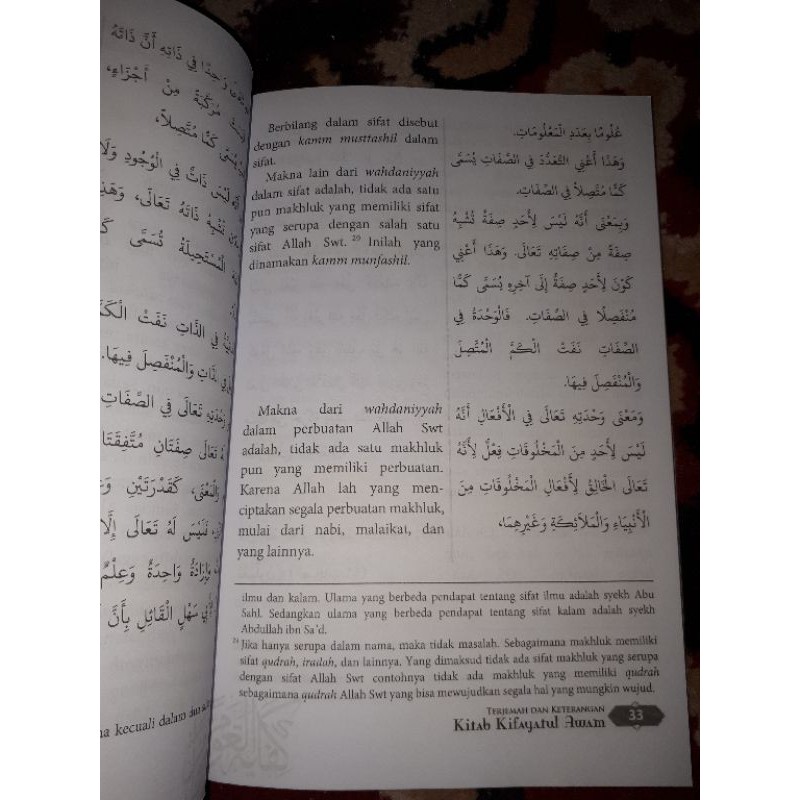 وَاحِدًا فِي ذَاتِهِ أَنَّ ذَاتَهُ
مُرَكَّبَةً مِنْ أَجْزَاءٍ،
كَمًّا مُتَّصِلًا،
لَيْسَ ذَاتٌ فِي الْوُجُودِ وَلَا
تُشْبِهُ ذَاتَهُ تَعَالَى، وَهَذِهِ
الْمُسْتَحِيلَةُ تُسَمَّى
فِي الذَّاتِ نَفَتْ الْكَمَّ
وَالْمُنْفَصِلَ فِيهَا.
تَعَالَى فِي الصِّفَاتِ
تَعَالَى صِفَتَانِ مُتَّفِقَتَا
وَالْمَعْنَى، كَقُدْرَتَيْنِ
فَلَيْسَ لَهُ تَعَالَى إِلَّا
وَإِرَادَةٌ وَاحِدَةٌ وَعِلْمٌ
سَهْلٍ الْقَائِلِ بِأَنَّ
kecuali dalam
Berbilang dalam sifat disebut
dengan kamm musttashil dalam
sifat.
Makna lain dari wahdaniyyah
dalam sifat adalah, tidak ada satu
pun makhluk yang memiliki sifat
yang serupa dengan salah satu
sifat Allah Swt. 29 Inilah yang
dinamakan kamm munfashil.
Makna dari wahdaniyyah
dalam perbuatan Allah Swt
adalah, tidak ada satu makhluk
pun yang memiliki perbuatan.
Karena Allah lah yang men-
ciptakan segala perbuatan makhluk,
mulai dari nabi, malaikat, dan
yang lainnya.
عُلُومًا بِعَدَدِ الْمَعْلُومَاتِ.
وَهَذَا أَعْنِي التَّعَدُّدَ فِي الصِّفَاتِ يُسَمَّى
كَمًّا مُتَّصِلًا فِي الصِّفَاتِ.
وَبِمَعْنَى أَنَّهُ لَيْسَ لِأَحَدٍ صِفَةٌ تُشْبِهُ
صِفَةً مِنْ صِفَاتِهِ تَعَالَى. وَهَذَا أَعْنِي
كَوْنَ لِأَحَدٍ صِفَةٌ إِلَى آخِرِهِ يُسَمَّى كَمًّا
مُنْفَصِلًا فِي الصِّفَاتِ. فَالْوَحْدَةُ فِي
الصِّفَاتِ نَفَتْ الْكَمَّ الْمُتَّصِلَ
وَالْمُنْفَصِلَ فِيهَا.
وَمَعْنَى وَحْدَتِهِ تَعَالَى فِي الْأَفْعَالِ أَنَّهُ
لَيْسَ لِأَحَدٍ مِنَ الْمَخْلُوقَاتِ فِعْلٌ لِأَنَّهُ
تَعَالَى الْخَالِقُ لِأَفْعَالِ الْمَخْلُوقَاتِ مِنَ
الْأَنْبِيَاءِ وَالْمَلَائِكَةِ وَغَيْرِهِمَا،
ilmu dan kalam. Ulama yang berbeda pendapat tentang sifat ilmu adalah syekh Abu
Sahl. Sedangkan ulama yang berbeda pendapat tentang sifat kalam adalah syekh
Abdullah ibn Sa'd.
29 Jika hanya serupa dalam nama, maka tidak masalah. Sebagaimana makhluk memiliki
sifat qudrah, iradah, dan lainnya. Yang dimaksud tidak ada sifat makhluk yang serupa
dengan sifat Allah Swt contohnya tidak ada makhluk yang memiliki qudrah
sebagaimana qudrah Allah Swt yang bisa mewujudkan segala hal yang mungkin wujud.
TERJEMAH DAN KETERANGAN
Kitab Kifayatul Awam
33